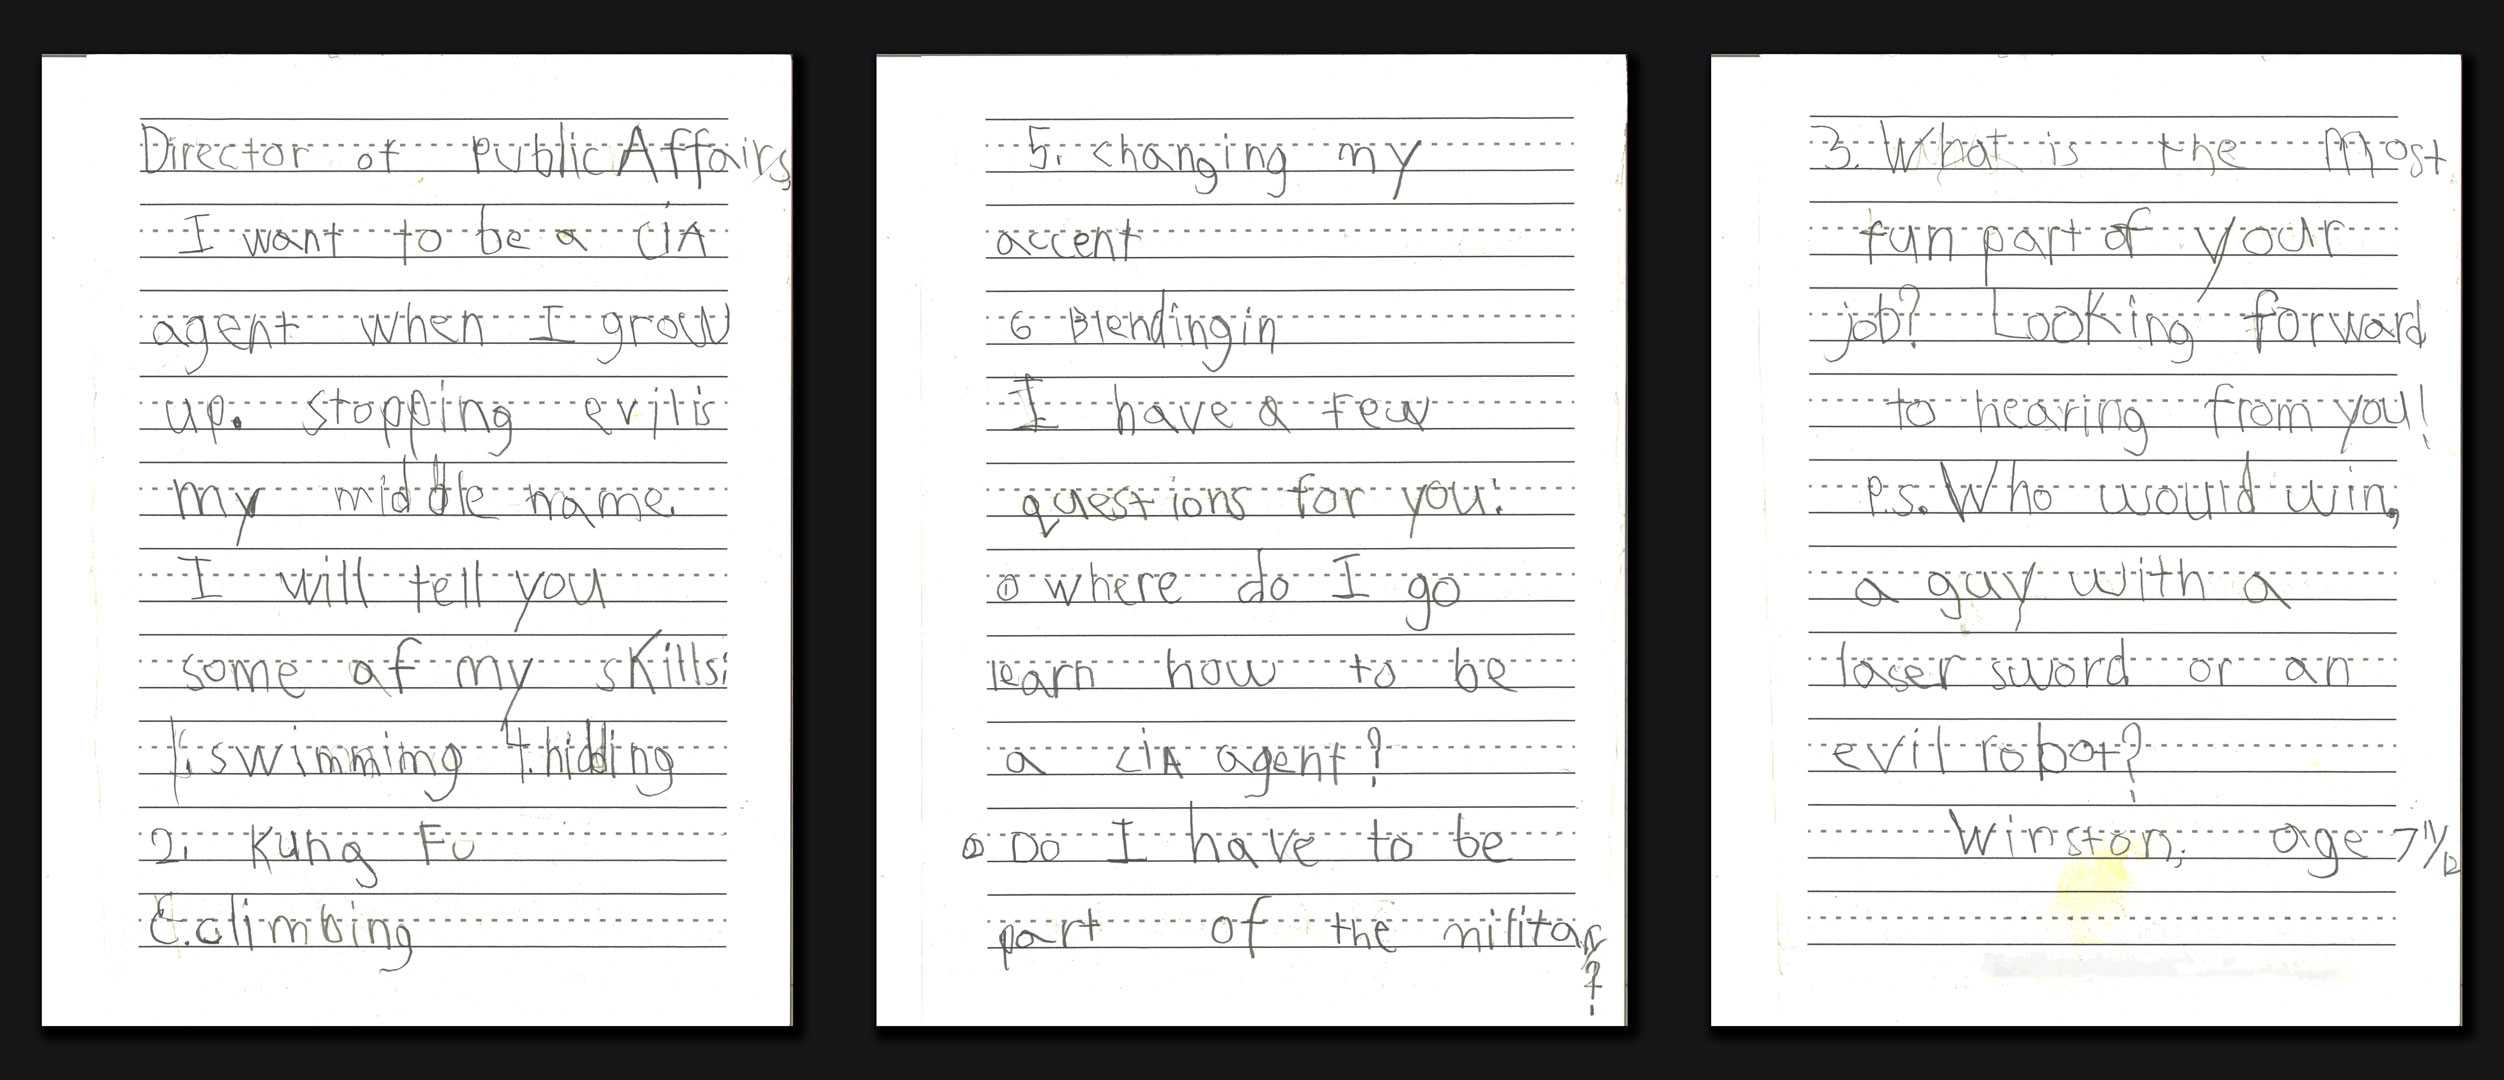 Director of Public Affairs,
I want to be a CIA
agent when I grow
up. stopping evil is
my middle name.
I will tell you
some of my skills:
1. swimming 4. hidding
2. Kung Fu
3. climbing
5. changing my
accent
6 Blending in
I have a few
questions for you:
① where do I go
learn how to be
a CIA agent?
② Do I have to be
part of the militar
?
3. What is the most
fun part of your
job? Looking forward
to hearing from you!
P.s. Who would win,
a guy with a
laser sword or an
evil robot?
Winston, age 7 11/12